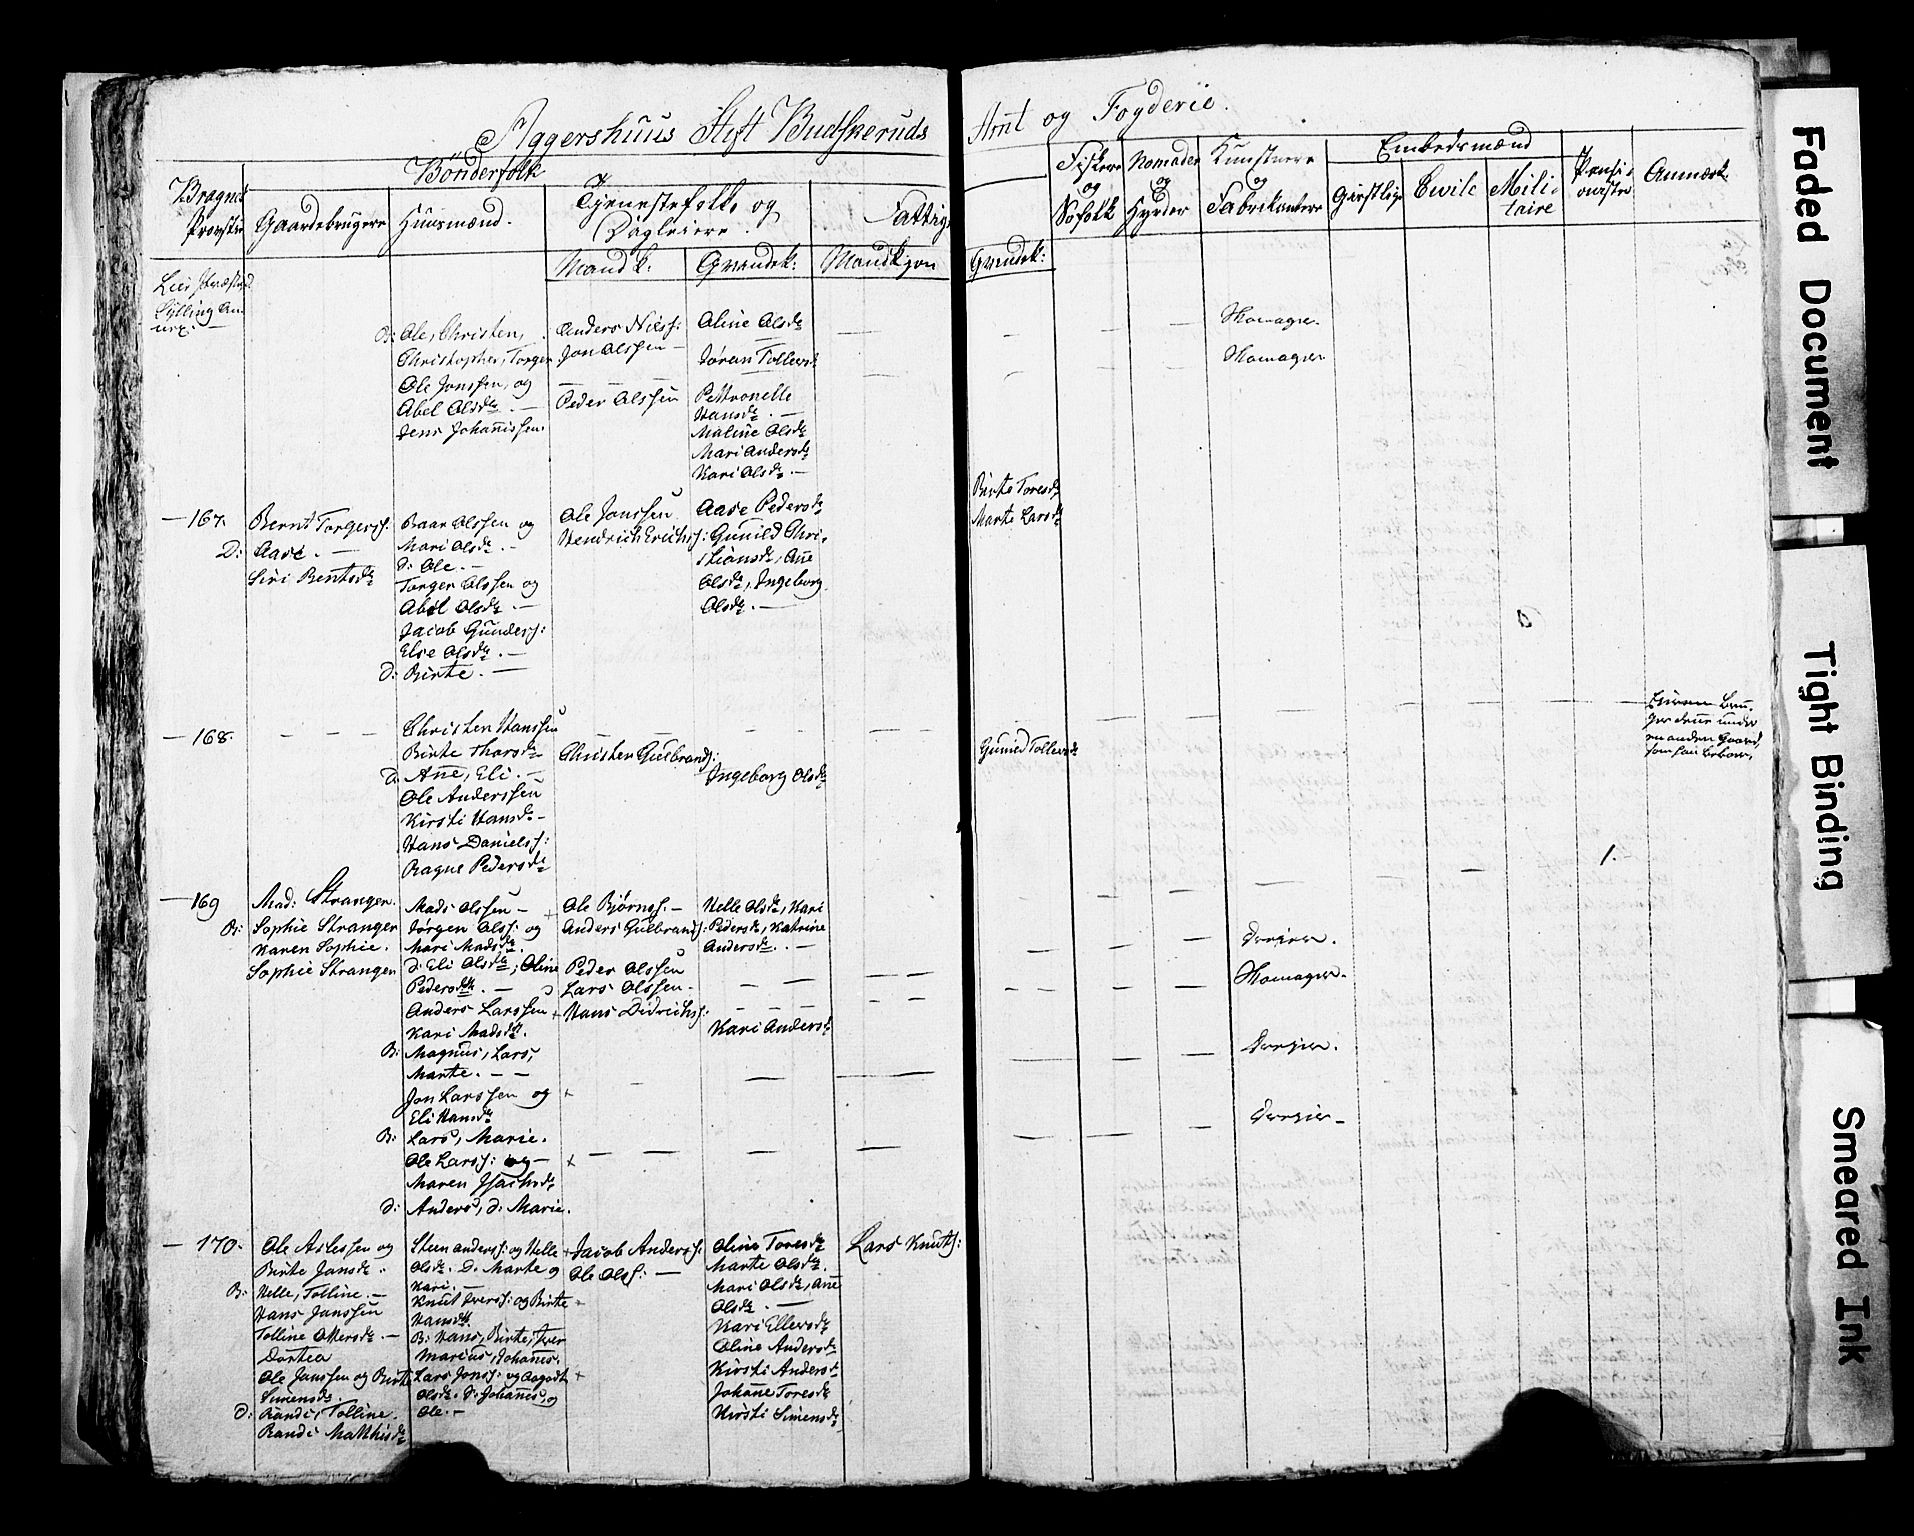 Aggershuus Stift Budskeruds Amt og Fogderie.
Bragnæs
Provstie
Bønderfolk
Gaardebrugere
Huusmænd.
Tjenestefolk og
Dagleiere.
Mandk:
Qvindek:
Fattige
Mandkjøn
Qvindek:
Fiskere
og
Søfolk
Nomader
og
Hyrder
Kunstnere
og
Fabrikantere
Embedsmænd
Geistlige
Civile
Mili-
taire
Pensi-
onister
Anmærk.
Lier Præstegj
Sylling An-
nex. —
B: Ole, Christen,
Christopher, Torger
Ole Jonssen, og
Abel Olsdr. —
Jens Johanissen.
Anders Nilss:
Jon Olssen —
— — —
Peder Olssen
Oline Olsdr
Jøran Tollevsdr
Pettronelle
Hansdr. —
Maline Olsdr
Mari Andersdr
Kari Olsdr. —
Skomager.
Skomager.
— 167.
Bernt Torgerss:
D: Aase. —
Siri Bentsdr
Baar Olssen og
Mari Olsdr. —
d: Ole. —
Torger Olssen og
Abel Olsdr. —
Jacob Gunderss:
Else Olsdr. —
d: Birte. —
Ole Jonssen
Hendrich Erichss:
Aase Pedersdr
Gunild Chri-
stiansdr, Ane
Olsdr, Ingeborg
Olsdr. —
Birte Toresdr
Marte Larsdr
— 168. — — —
Christen Hanssen
Birte Thorsdr
D: Ane, Eli. —
Ole Anderssen
Kirsti Hansdr —
Hans Danielss:
Ragne Pedersdr
Christen Gulbrands:
Ingeborg Olsdr
Gunild Tollevsdr
denne under
en anden Gaard,
1.
— 169
Mad: Stranger.
B: Sophie Stranger
Karen Sophie.
Sophie Stranger
Mads Olssen —
Jørgen Olss: og
Mari Madsdr.
d: Eli Olsdr; Oline
Pedersdr. —
Anders Larssen
Kari Madsdr.
B: Magnus, Lars,
Marte. — —
Jon Larssen og
Eli Hansdr
B: Lars, Marie.
Ole Larss: og —
Maren Isachsdr
d: Anders, d: Marie.
+ Ole Bjørnss: —
Anders Gulbrands:
Peder Olssen
Lars Olssen —
+ Hans Didrichss:
Helle Olsdr, Kari
Pedersdr, Katrine
Andersdr. —
Kari Andersdr
Dreyer.
Skomager.
Dreyer.
Dreyer —
— 170.
Ole Aslessen og
Birte Jonsdr.
B: Helle, Tolline. —
Hans Janssen
Tolline Ottersdr. —
Dortea
Ole Janssen og Birte
Simensdr.
D: Randi, Tolline.
Randi Matthisdr
Steen Anderss: og Helle
Olsdr. D: Marte og
Kari. —
Knut Iverss: og Birte
Hansdr.
B: Hans, Birte, Iver
Marius, Johanis.
Lars Jonss: og Aagodt
Olsdr. d: Johanis, og
Ole. —
+ Jacob Anderss:
Ole Olss: —
Oline Toresdr
Marte Olsdr
Mari Olsdr, Ane
Olsdr. —
Kari Ellevsdr
Oline Andersdr
Kirsti Andersdr
Johane Toresdr
Kirsti Simensdr
Lars Knuts:
Faded Document
Tight Binding
Smeared Ink